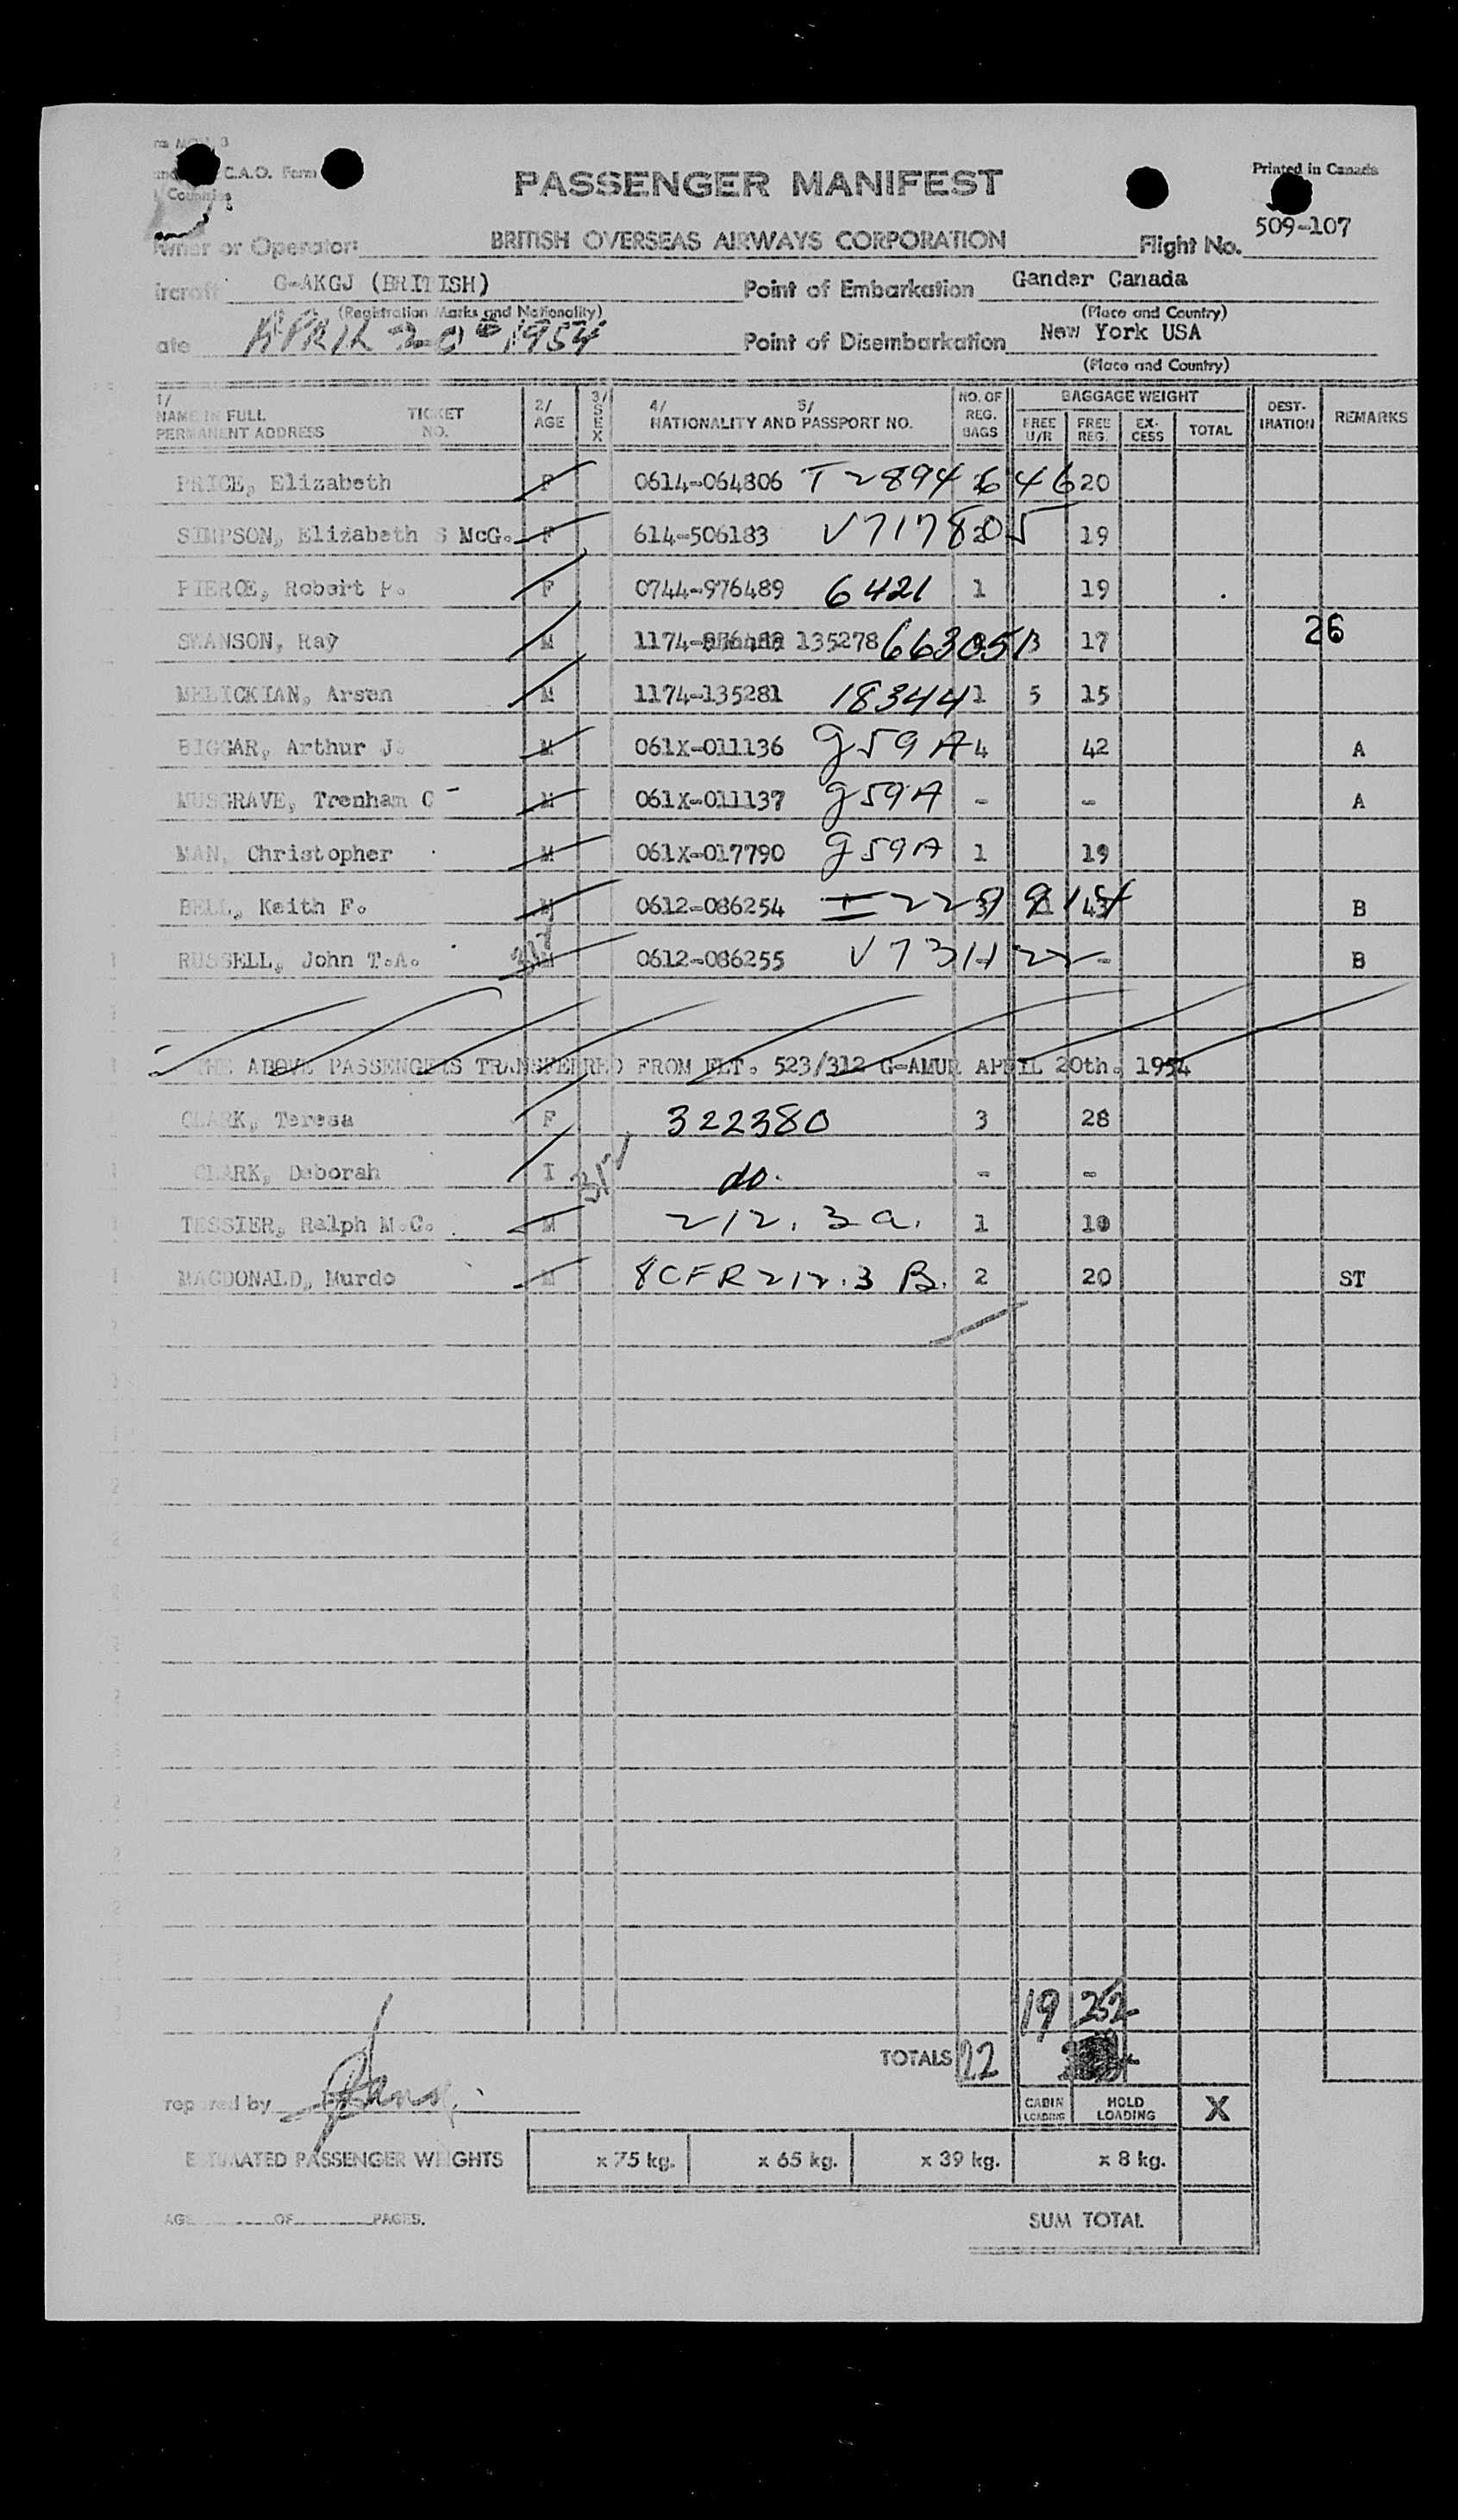 C.A.O. Form
Countries
PASSENGER MANIFEST
Printed in Canada
Owner or Operator: BRITISH OVERSEAS AIRWAYS CORPORATION Flight No. 509-107
ircraft G-AKGJ (BRITISH) Point of Embarkation Gander Canada
(Registration Marks and Nationality) (Place and Country)
ate APRIL 20th 1954 Point of Disembarkation New York USA
(Place and Country)
1/ NAME IN FULL PERMANENT ADDRESS TICKET NO. 2/ AGE 3/ SEX 4/ 5/ NATIONALITY AND PASSPORT NO. NO. OF REG. BAGS BAGGAGE WEIGHT FREE U/R FREE REG. EX-CESS TOTAL DEST-INATION REMARKS
PRICE, Elizabeth F 0614-064806 T2894646 20
SIMPSON, Elizabeth S McG. F 614-506183 V717805 19
PIERCE, Robert P. F 0744-976489 6421 1 19
SWANSON, Ray M 1174- 135278 663051 17 26
MELICKIAN, Arsen M 1174-135281 18344 1 5 15
BIGGAR, Arthur J. M 061X-011136 g59A 4 42 A
MUSGRAVE, Trenham C - M 061X-011137 g59A - - A
MAN, Christopher M 061X-017790 g59A 1 19
BELL, Keith F. M 0612-086254 I 43 B
RUSSELL, John T.A. M 0612-086255 - B
THE ABOVE PASSENGERS TRANSFERRED FROM FLT. 523/312 G-AMUR APRIL 20th. 1954
CLARK, Teresa F 322380 3 28
CLARK, Deborah I do. - -
TESSIER, Ralph M.C. M 212.3a. 1
MACDONALD, Murdo M 8CFR212.3 B. 2 20 ST
19 252
TOTALS 22
CABIN LOADING HOLD LOADING X
repared by
ESTIMATED PASSENGER WEIGHTS x 75 kg. x 65 kg. x 39 kg. x 8 kg.
AGE OF PAGES. SUM TOTAL